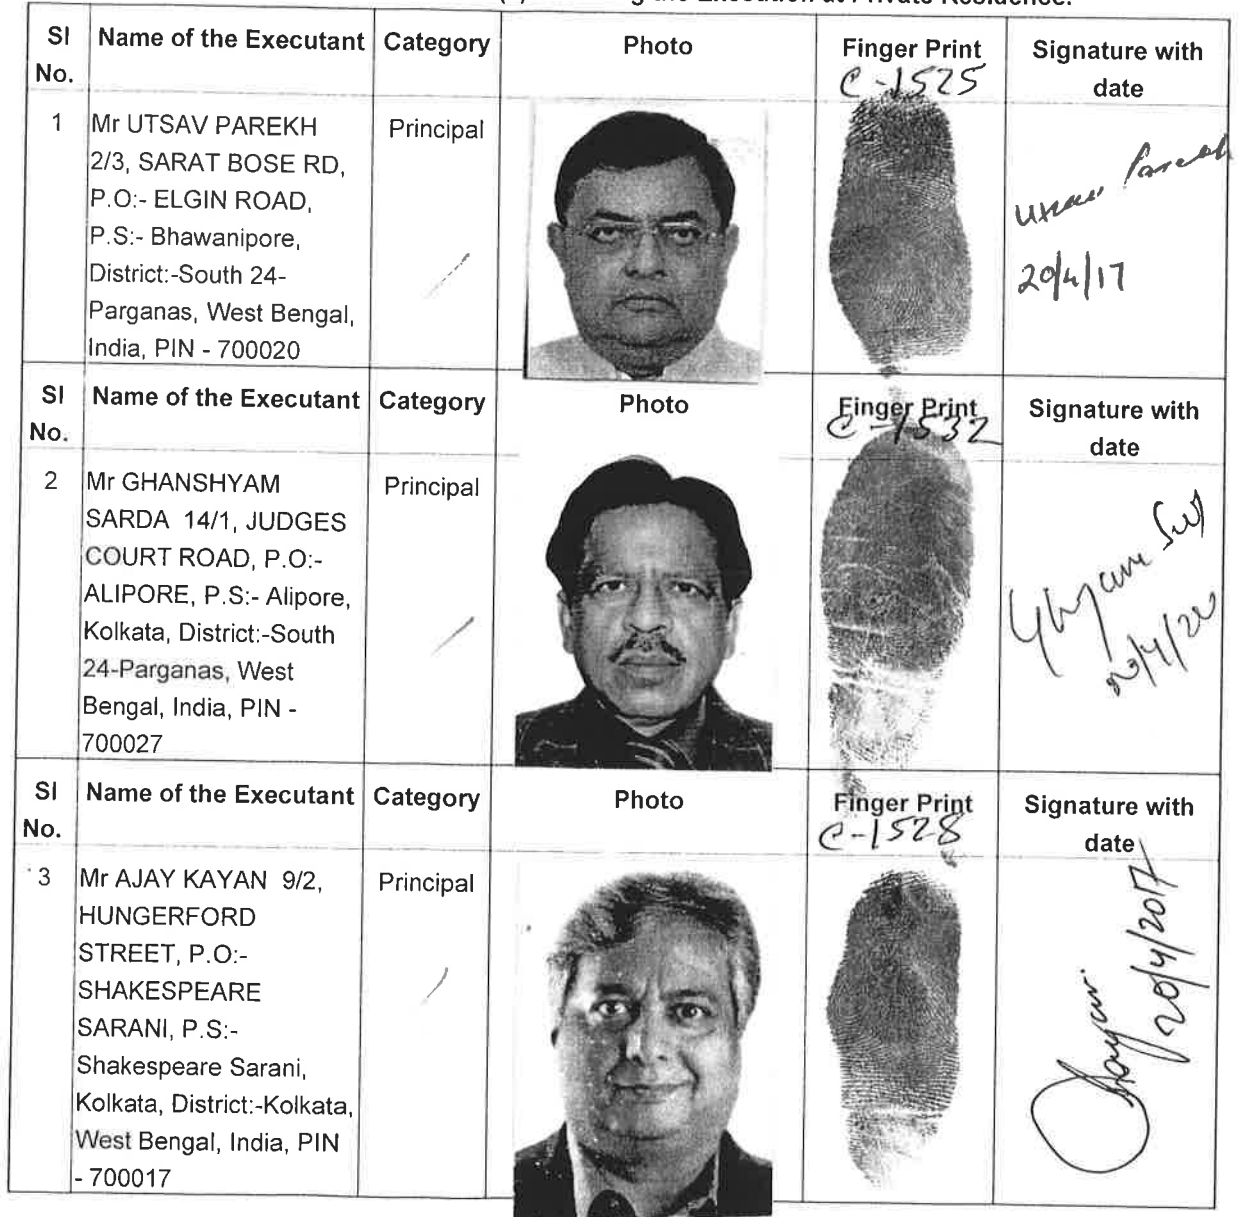 the Execution at Private Residence.
Sl No.
Name of the Executant
Category
Photo
Finger Print
Signature with
date
C-1525
1
Mr UTSAV PAREKH
2/3, SARAT BOSE RD,
P.O:- ELGIN ROAD,
P.S:- Bhawanipore,
District:-South 24-
Parganas, West Bengal,
India, PIN - 700020
Principal
Utsav Parekh
20/4/17
Sl No.
Name of the Executant
Category
Photo
Finger Print
Signature with
date
C-1532
2
Mr GHANSHYAM
SARDA 14/1, JUDGES
COURT ROAD, P.O:-
ALIPORE, P.S:- Alipore,
Kolkata, District:-South
24-Parganas, West
Bengal, India, PIN -
700027
Principal
Sl No.
Name of the Executant
Category
Photo
Finger Print
Signature with
date
C-1528
3
Mr AJAY KAYAN 9/2,
HUNGERFORD
STREET, P.O:-
SHAKESPEARE
SARANI, P.S:-
Shakespeare Sarani,
Kolkata, District:-Kolkata,
West Bengal, India, PIN
- 700017
Principal
20/4/2017